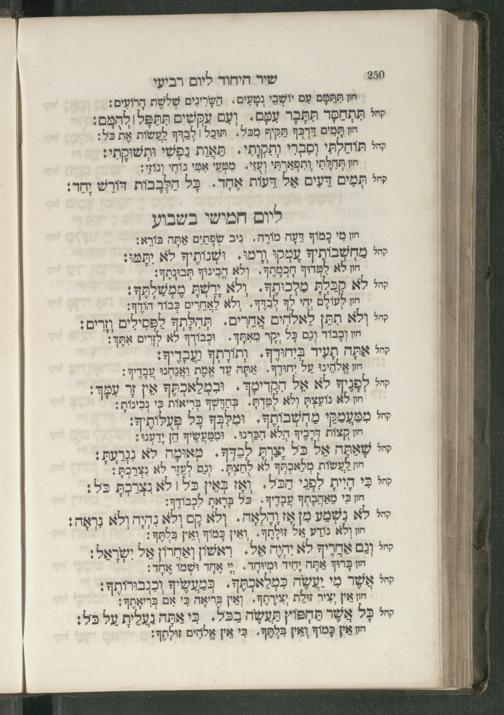 250 שיר היחוד ליום רביעי
חזן תִּתַּמָּם עִם יוֹשְׁבֵי נְטָעִים. הַשָּׂרִיגִים שְׁלֹשֶׁת הָרוֹעִים:
קהל תִּתְחַסָּד תִּתָּבָר עִמָּם. וְעִם עִקְּשִׁים תִּתַּפָּל לְהֻמָּם:
חזן תָּמִים דַּרְכְּךָ תַּקִּיף מִכֹּל. תּוּכַל לְבַדְּךָ לַעֲשׂוֹת אֶת כֹּל:
קהל תּוֹחַלְתִּי וְסִבְרִי וְתִקְוָתִי. תַּאֲוַת נַפְשִׁי וּתְשׁוּקָתִי:
חזן תְּהִלָּתִי וְתִפְאַרְתִּי וְעֻזִּי. מִמְּעֵי אִמִּי גּוֹחִי וְגוֹזִי:
קהל תְּמִים דֵּעִים אֵל דֵּעוֹת אֶחָד. כָּל הַלְּבָבוֹת דּוֹרֵשׁ יָחַד:
ליום חמישי בשבוע
חזן מִי כָמוֹךָ דֵּעָה מוֹרֶה. נִיב שְׂפָתַיִם אַתָּה בּוֹרֵא:
קהל מַחְשְׁבוֹתֶיךָ עָמְקוּ וְרָמוּ. וּשְׁנוֹתֶיךָ לֹא יִתָּמּוּ:
חזן לֹא לִמְּדוּךָ חָכְמָתֶךָ. וְלֹא הֱבִינוּךָ תְּבוּנָתֶךָ:
קהל לֹא קִבַּלְתָּ מַלְכוּתֶךָ. וְלֹא יָרַשְׁתָּ מֶמְשַׁלְתֶּךָ:
חזן לְעוֹלָם יְהִי לְךָ לְבַדֶּךָ. וְלֹא לַאֲחֵרִים כְּבוֹד הוֹדֶךָ:
קהל וְלֹא תִתֵּן לֵאלֹהִים אֲחֵרִים. תְּהִלָּתְךָ לַפְּסִילִים וְזָרִים:
חזן וְכָבוֹד וְגַם כָּל יְקָר מֵאִתָּךְ. וּכְבוֹדְךָ לֹא לְזָרִים אִתָּךְ:
קהל אַתָּה תָּעִיד בְּיִחוּדֶךָ. וְתוֹרָתְךָ וַעֲבָדֶיךָ:
חזן אֱלֹהֵינוּ עַל יִחוּדֶךָ. אַתָּה עֵד אֱמֶת וַאֲנַחְנוּ עֲבָדֶיךָ:
קהל לְפָנֶיךָ לֹא אֵל הִקְדִּימֶךָ. וּבִמְלַאכְתְּךָ אֵין זָר עִמָּךְ:
חזן לֹא נוֹעַצְתָּ וְלֹא לֻמַּדְתָּ. בְּחַדֶּשְׁךָ בְּרִיאוֹת כִּי נְבוּנוֹתָ:
קהל מִמַּעֲמַקֵּי מַחְשְׁבוֹתֶיךָ. וּמִלִּבְּךָ כָּל פְּעֻלּוֹתֶיךָ:
חזן קְצוֹת דְּרָכֶיךָ הֲלֹא הִכַּרְנוּ. וּמִמַּעֲשֶׂיךָ הֵן יָדַעְנוּ:
קהל שֶׁאַתָּה אֵל כֹּל יָצַרְתָּ לְבַדֶּךָ. מְאוּמָה לֹא נִגְרַעְתָּ:
חזן לַעֲשׂוֹת מְלַאכְתְּךָ לֹא לֻחַצְתָּ. וְגַם לְעֵזֶר לֹא נִצְרַכְתָּ:
קהל כִּי הָיִיתָ לִפְנֵי הַכֹּל. וְאָז בְּאֵין כֹּל לֹא נִצְרַכְתָּ כֹּל:
חזן כִּי מֵאַהֲבָתְךָ עֲבָדֶיךָ. כֹּל בָּרָאתָ לִכְבוֹדֶךָ:
קהל לֹא נִשְׁמַע מִן אָז וָהָלְאָה. וְלֹא קָם וְלֹא נִהְיָה וְלֹא נִרְאָה:
חזן וְלֹא נוֹדַע אֵל זוּלָתֶךָ. וְאֵין כָּמוֹךָ וְאֵין בִּלְתֶּךָ:
קהל וְגַם אַחֲרֶיךָ לֹא יִהְיֶה אֵל. רִאשׁוֹן וְאַחֲרוֹן אֵל יִשְׂרָאֵל:
חזן בָּרוּךְ אַתָּה יָחִיד וּמְיֻחָד. יְיָ אֶחָד וּשְׁמוֹ אֶחָד:
קהל אֲשֶׁר מִי יַעֲשֶׂה כִּמְלַאכְתֶּךָ. כְּמַעֲשֶׂיךָ וְכִגְבוּרוֹתֶיךָ:
חזן אֵין יְצִיר זוּלַת יְצִירָתֶךָ. וְאֵין בְּרִיאָה כִּי אִם בְּרִיאָתֶךָ:
קהל כָּל אֲשֶׁר תַּחְפּוֹץ תַּעֲשֶׂה בַכֹּל. כִּי אַתָּה נַעֲלֵיתָ עַל כֹּל:
חזן אֵין כָּמוֹךָ וְאֵין בִּלְתֶּךָ. כִּי אֵין אֱלֹהִים זוּלָתֶךָ: